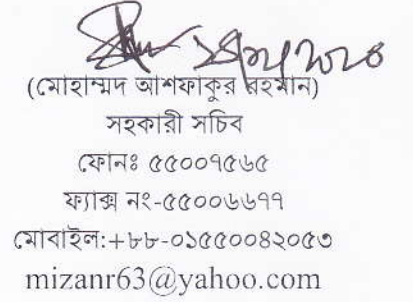 (মোহাম্মদ আশফাকুর রহমান)
সহকারী সচিব
ফোনঃ ৫৫০০৭৫৬৫
ফ্যাক্স নং-৫৫০০৬৬৭৭
মোবাইল:+৮৮-০১৫৫০০৪২০৫৩
mizanr63@yahoo.com